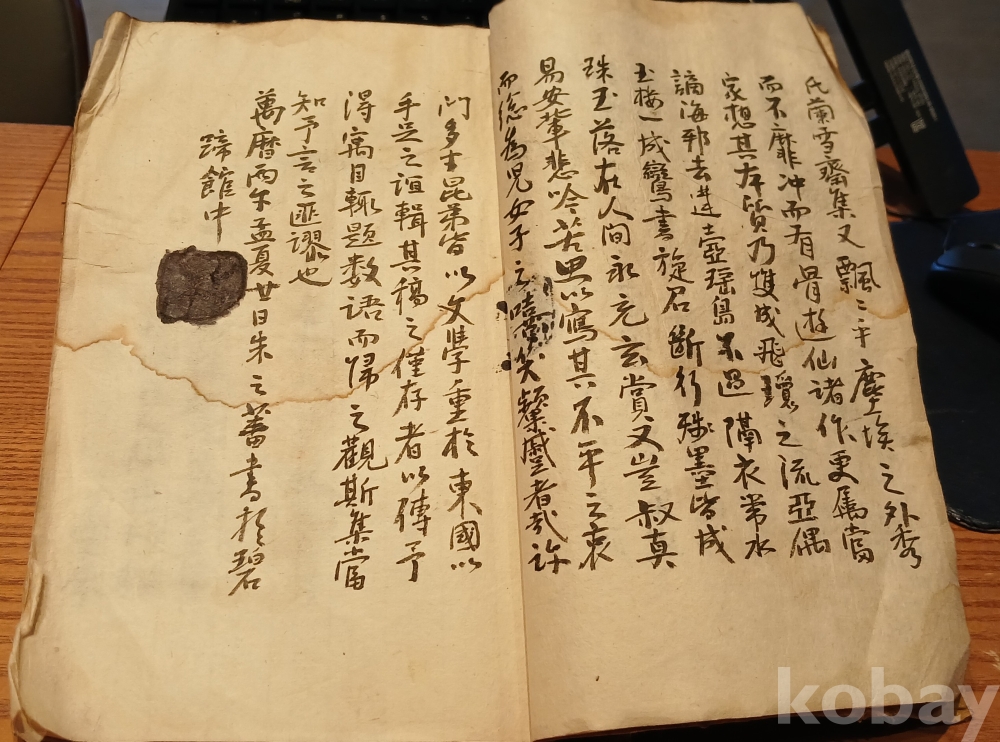 氏蘭雪齋集又飄々乎塵埃之外秀
而不靡冲而有骨遊仙諸作更屬當
家想其本質乃雙成飛瓊之流亞偶
謫海邦去蓬壺瑶島不過隔衣常水
玉樓一成鸞書旋召斷行殘墨皆成
珠玉落在人間永充玄賞又豈叔真
易安輩悲吟苦思以寫其不平之衷
而総為兒女子之嘻笑顰蹙者哉許
門多才昆弟皆以文學重於東國以
手足之誼輯其稿之僅存者以傳予
得寓目輒題数語而歸之觀斯集當
知予言之匪謬也
萬曆丙午孟夏廿日朱之蕃書於碧
蹄館中
kobay